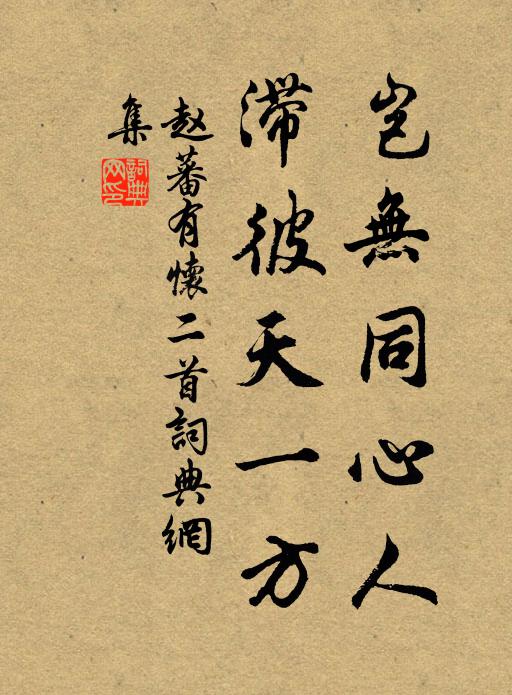 岂無同心人
滞彼天一方
赵蕃有懷二首詞典網
集
詞典
网印